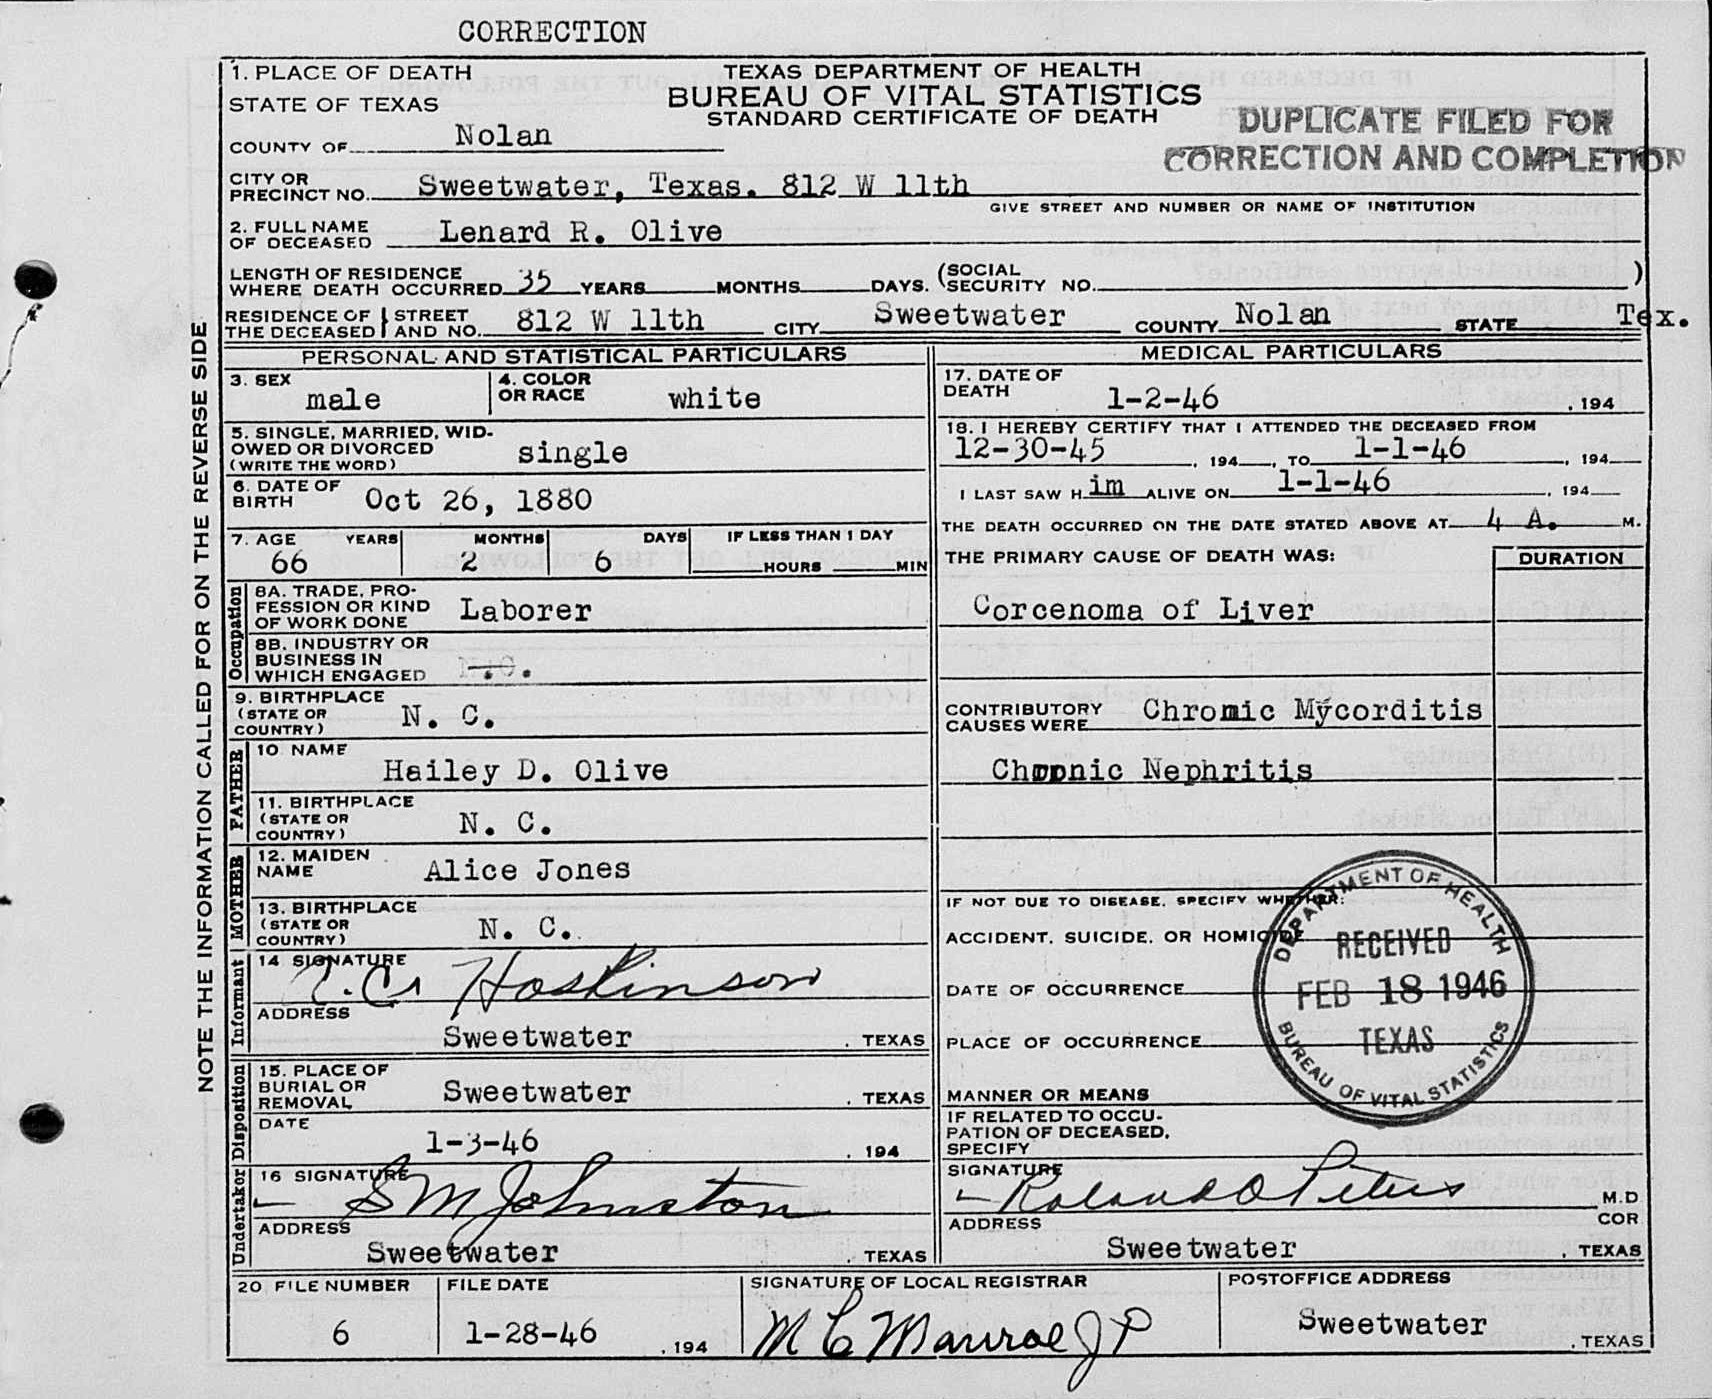 CORRECTION
1. PLACE OF DEATH
STATE OF TEXAS
COUNTY OF Nolan
TEXAS DEPARTMENT OF HEALTH
BUREAU OF VITAL STATISTICS
STANDARD CERTIFICATE OF DEATH
DUPLICATE FILED FOR
CORRECTION AND COMPLETION
CITY OR
PRECINCT NO. Sweetwater, Texas. 812 W 11th
GIVE STREET AND NUMBER OR NAME OF INSTITUTION
2. FULL NAME
OF DECEASED Lenard R. Olive
LENGTH OF RESIDENCE
WHERE DEATH OCCURRED 35 YEARS MONTHS DAYS. (SOCIAL
SECURITY NO. )
RESIDENCE OF
THE DECEASED
STREET
AND NO. 812 W 11th CITY Sweetwater COUNTY Nolan STATE Tex.
NOTE THE INFORMATION CALLED FOR ON THE REVERSE SIDE
PERSONAL AND STATISTICAL PARTICULARS
3. SEX
male
4. COLOR
OR RACE white
5. SINGLE, MARRIED, WID-
OWED OR DIVORCED
(WRITE THE WORD) single
6. DATE OF
BIRTH Oct 26, 1880
7. AGE YEARS MONTHS DAYS IF LESS THAN 1 DAY
66 2 6 HOURS MIN
Occupation
8A. TRADE, PRO-
FESSION OR KIND
OF WORK DONE Laborer
8B. INDUSTRY OR
BUSINESS IN
WHICH ENGAGED
9. BIRTHPLACE
(STATE OR
COUNTRY) N. C.
FATHER
10 NAME
Hailey D. Olive
11. BIRTHPLACE
(STATE OR
COUNTRY) N. C.
MOTHER
12. MAIDEN
NAME Alice Jones
13. BIRTHPLACE
(STATE OR
COUNTRY) N. C.
Informant
14 SIGNATURE
Hoskinson
ADDRESS
Sweetwater , TEXAS
Disposition
15. PLACE OF
BURIAL OR
REMOVAL Sweetwater , TEXAS
DATE
1-3-46 , 194
Undertaker
16 SIGNATURE
S M Johnston
ADDRESS
Sweetwater , TEXAS
MEDICAL PARTICULARS
17. DATE OF
DEATH 1-2-46 , 194
18. I HEREBY CERTIFY THAT I ATTENDED THE DECEASED FROM
12-30-45 , 194 , TO 1-1-46 , 194
I LAST SAW H im ALIVE ON 1-1-46 , 194
THE DEATH OCCURRED ON THE DATE STATED ABOVE AT 4 A. M.
THE PRIMARY CAUSE OF DEATH WAS: DURATION
Corcenoma of Liver
CONTRIBUTORY
CAUSES WERE Chronic Mycorditis
Chronic Nephritis
IF NOT DUE TO DISEASE, SPECIFY WHETHER:
ACCIDENT, SUICIDE, OR HOMICIDE
DATE OF OCCURRENCE
PLACE OF OCCURRENCE
MANNER OR MEANS
IF RELATED TO OCCU-
PATION OF DECEASED,
SPECIFY
DEPARTMENT OF HEALTH
RECEIVED
FEB 18 1946
TEXAS
BUREAU OF VITAL STATISTICS
SIGNATURE
Roland O Peters M.D
COR
ADDRESS
Sweetwater , TEXAS
20 FILE NUMBER
6
FILE DATE
1-28-46 , 194
SIGNATURE OF LOCAL REGISTRAR
M C Manroe J P
POSTOFFICE ADDRESS
Sweetwater , TEXAS